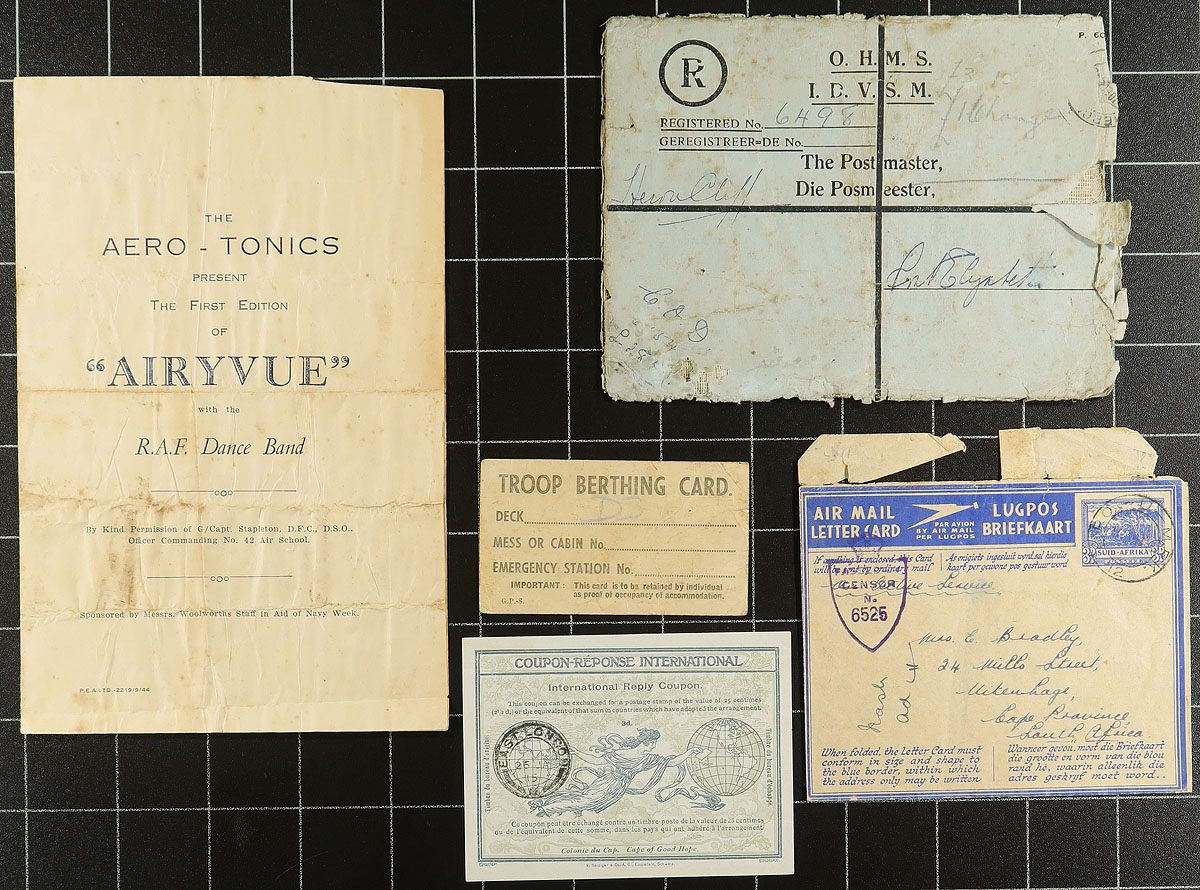 THE
AERO - TONICS
PRESENT
THE FIRST EDITION
OF
“AIRYVUE”
with the
R.A.F. Dance Band
By Kind Permission of G/Capt. Stapleton, D.F.C., D.S.O.,
Officer Commanding No. 42 Air School.
Sponsored by Messrs. Woolworths Staff in Aid of Navy Week.
P.E.A. LTD.-2219/9/44
P. 60
R
O. H. M. S.
I. D. V. S. M.
REGISTERED No. 6498
GEREGISTREER=DE No.
The Postmaster,
Die Posmeester,
Port Elizabeth
TROOP BERTHING CARD.
DECK
MESS OR CABIN No.
EMERGENCY STATION No.
IMPORTANT : This card is to be retained by individual
as proof of occupancy of accommodation.
G.P.-S.
COUPON-RÉPONSE INTERNATIONAL
International Reply Coupon.
This coupon can be exchanged for a postage stamp of the value of 25 centimes
(2½d.) or the equivalent of that sum in countries which have adopted the arrangement.
3d.
Timbre du bureau d'origine
EAST LONDON
Timbre du bureau d'échange.
Ce coupon peut être échangé contre un timbre-poste de la valeur de 25 centimes
ou de l'équivalent de cette somme, dans les pays qui ont adhéré à l'arrangement
Colonie du Cap. Cape of Good Hope.
AIR MAIL
LETTER CARD
PAR AVION
BY AIR MAIL
PER LUGPOS
LUGPOS
BRIEFKAART
SUID-AFRIKA
If anything is enclosed, this Card
will be sent by ordinary mail
As enigiets ingesluit word sal hierdie
kaart per gewone pos gestuur word
Service
CENSOR
No
6525
Mrs. E. Bradley,
24 Mills Street,
Uitenhage,
Cape Province
South Africa
When folded, the Letter Card must
conform in size and shape to
the blue border, within which
the address only may be written
Wanneer gevou, moet die Briefkaart
die grootte en vorm van die blou
rand hê, waarin alleenlik die
adres geskryf moet word..